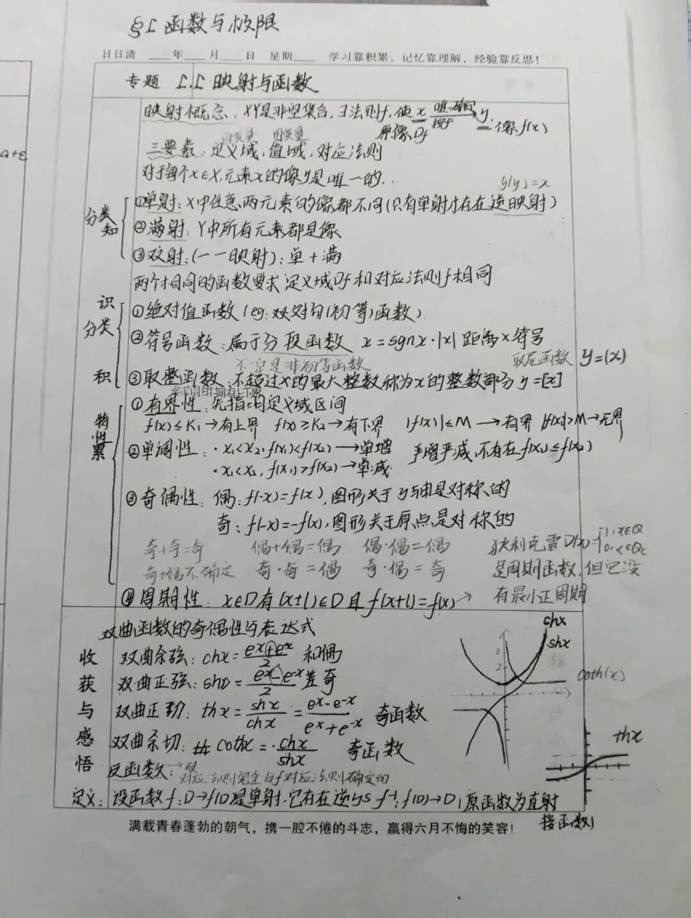 §1 函数与极限
日日清 ___年___月___日 星期___ 学习靠积累,记忆靠理解,经验靠反思!
专题 1.1 映射与函数
映射概念:XY是非空集合,∃法则f,使x 唯一确定 y.
原像 Df 像f(x)
自变量 因变量
三要素:定义域,值域,对应法则
对于每个x∈X,元素x的像y是唯一的..
g(y)=x
分类
①单射:X中任意两元素的像都不同(只有单射才存在逆映射)
知
②满射:Y中所有元素都是像
③双射:(一一映射):单+满
两个相同的函数要求定义域Df和对应法则f相同
识
分类
①绝对值函数(eg:双对勾(初等)函数)
②符号函数:属于分段函数 x=sgnx·|x| 距离×符号
不一定是非初等函数
取尾函数 y=(x)
积
③取整函数:不超过x的最大整数称为x的整数部分y=[x]
特性
累
①有界性:先指出定义域区间
f(x)≤K1→有上界 f(x)≥K2→有下界 |f(x)|≤M→有界 |f(x)|>M→无界
②单调性:·x1<x2,f(x1)<f(x2)→单增 严增严减,不存在f(x1)≤f(x2)
·x1<x2,f(x1)>f(x2)→单减
③奇偶性:偶:f(-x)=f(x),图形关于y轴是对称的
奇:f(-x)=-f(x),图形关于原点是对称的
奇+奇=奇 偶+偶=偶 偶·偶=偶 狄利克雷D(x)={1,x∈Q
奇+偶不确定 奇·奇=偶 奇·偶=奇 0,x∈Qc
是周期函数,但它没
有最小正周期
④周期性:x∈D有(x+l)∈D且f(x+l)=f(x)→
双曲函数的奇偶性与表达式
收
获
与
感
悟
双曲余弦:chx=ex+e-x/2 和偶
双曲正弦:shx=ex-e-x/2 差奇
双曲正切:thx=shx/chx=ex-e-x/ex+e-x 奇函数
双曲余切:cothx=chx/shx 奇函数
chx
shx
coth(x)
thx
反函数:对应法则完全由f对应法则确定的
定义:设函数f:D→f(D)是单射,它存在逆映射f-1:f(D)→D(原函数为直射
接函数)
满载青春蓬勃的朝气,携一腔不倦的斗志,赢得六月不悔的笑容!